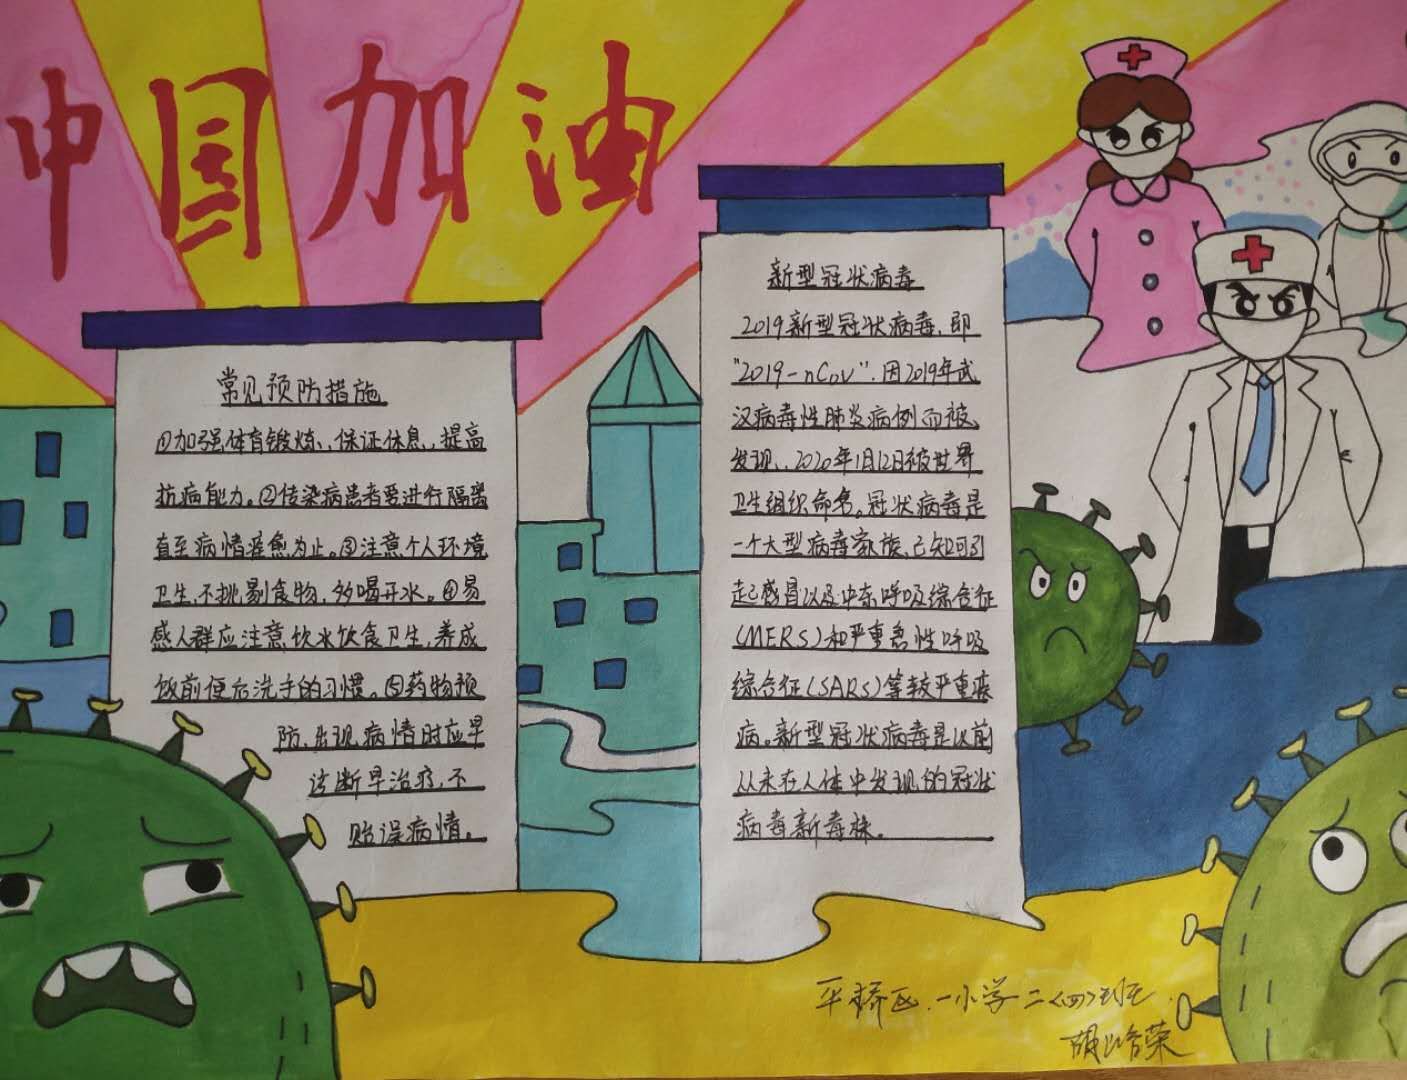 中国加油
常见预防措施
①加强体育锻炼、保证休息，提高
抗病能力。②传染病患者要进行隔离
直至病情痊愈为止。③注意个人环境
卫生，不挑剔食物，多喝开水。④易
感人群应注意饮水饮食卫生，养成
饭前便后洗手的习惯。⑤药物预
防，出现病情时应早
诊断早治疗，不
贻误病情。
新型冠状病毒
2019新型冠状病毒，即
"2019-nCoV"．因2019年武
汉病毒性肺炎病例而被
发现，2020年1月12日被世界
卫生组织命名。冠状病毒是
一个大型病毒家族，已知可引
起感冒以及中东呼吸综合征
(MERS)和严重急性呼吸
综合征(SARS)等较严重疾
病。新型冠状病毒是以前
从未在人体中发现的冠状
病毒新毒株。
平桥区．一小学二〈四〉班
荣